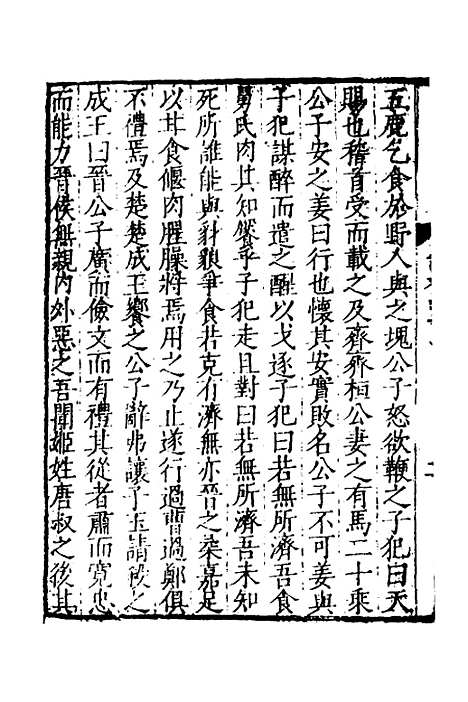 五鹿乞食於野人與之塊公子怒欲鞭之子犯曰天
賜也稽首受而載之及齊齊桓公妻之有馬二十乘
公子安之姜曰行也懷其安實敗名公子不可姜與
子犯謀醉而遣之醒以戈逐子犯曰若無所濟吾食
舅氏肉其知饜乎子犯走且對曰若無所濟吾未知
死所誰能與豺狼爭食若克有濟無亦晉之柔嘉足
以甘食偃肉腥臊將焉用之乃止遂行過曹過鄭俱
不禮焉及楚楚成王饗之公子辭弗讓子玉請殺之
成王曰晉公子廣而儉文而有禮其從者肅而寬忠
而能力晉侯無親内外惡之吾聞姬姓唐叔之後其